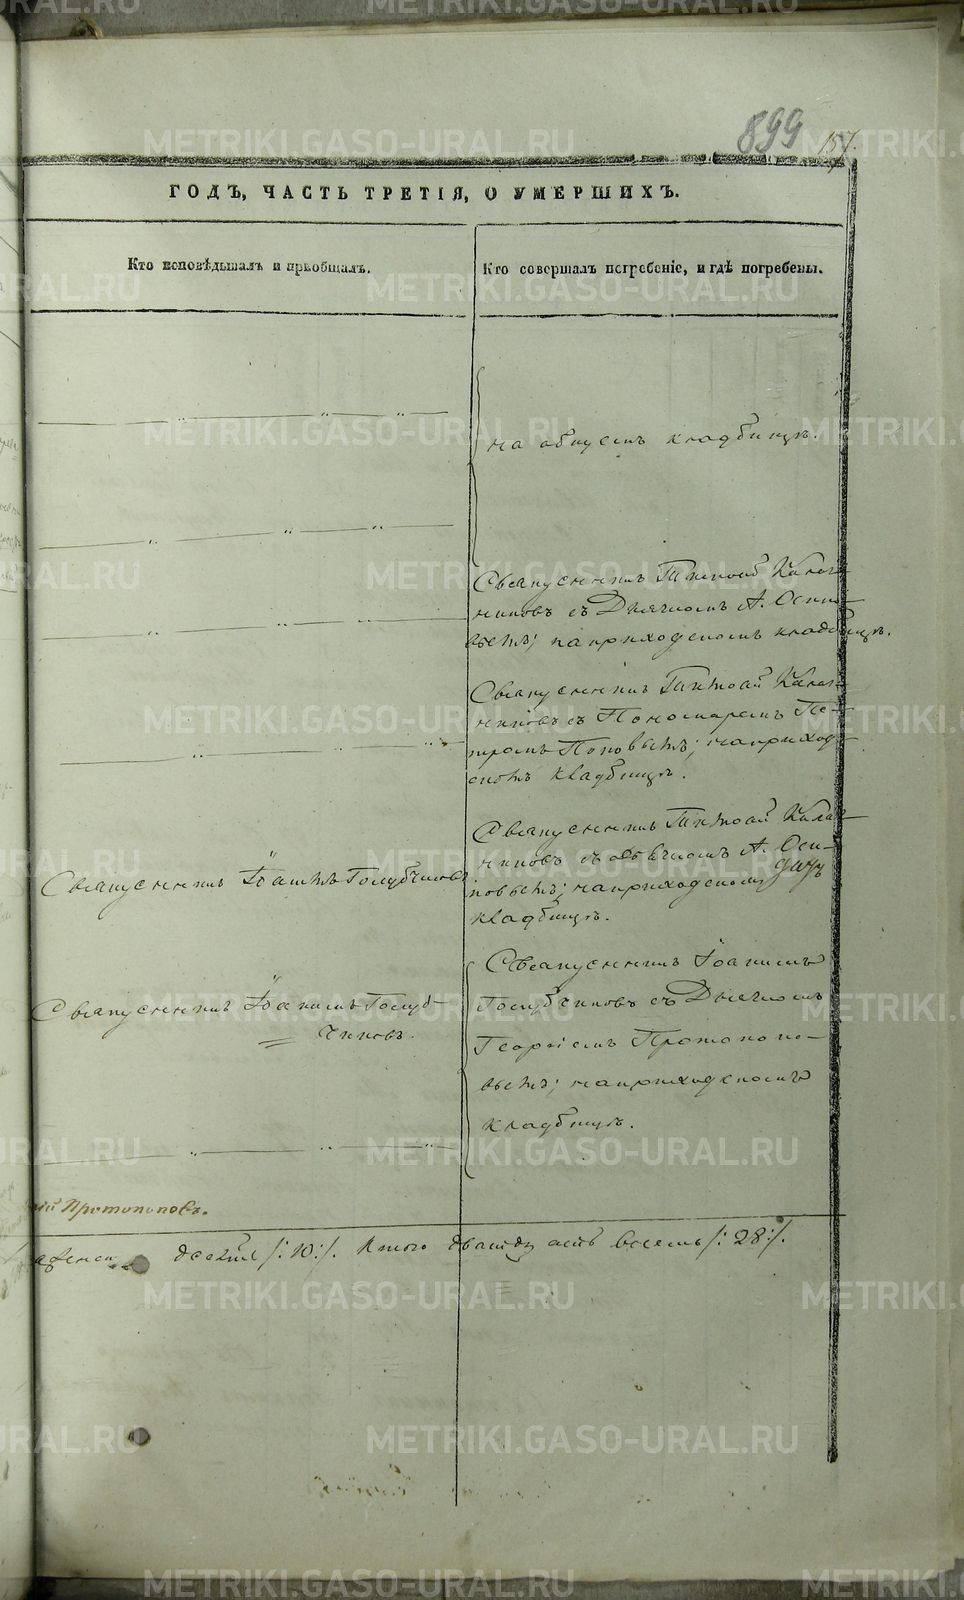 899
157.
ГОДЪ, ЧАСТЬ ТРЕТІЯ, О УМЕРШИХЪ.
Кто исповѣдывалъ и пріобщалъ.
Кто совершалъ погребеніе, и гдѣ погребены.
на кладбищѣ.
Священникъ
съ Дьячкомъ А. Осипо-
вымъ; на приходскомъ кладбищѣ.
Священникъ
съ Пономаремъ Пе-
тромъ Поповымъ; на приход-
скомъ кладбищѣ.
Священникъ Іоаннъ Голубчиковъ
Священникъ
А. Оси-
повымъ; на приходскомъ
кладбищѣ.
Священникъ Іоаннъ Голуб-
чиковъ.
Священникъ Іоаннъ
Голубчиковъ съ Дьячкомъ
Георгіемъ Протопопо-
вымъ; на приходскомъ
кладбищѣ.
Протопоповъ.
десять /: 10 :/. Итого двадцать восемь /: 28 :/.
METRIKI.GASO-URAL.RU